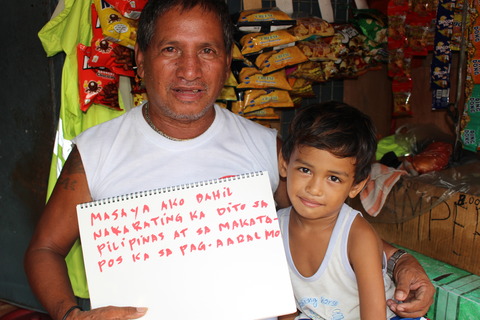 MASAYA AKO DAHIL
NAKARATING KA DITO SA
PILIPINAS AT SA MAKATA-
POS KA SA PAG-AARAL MO